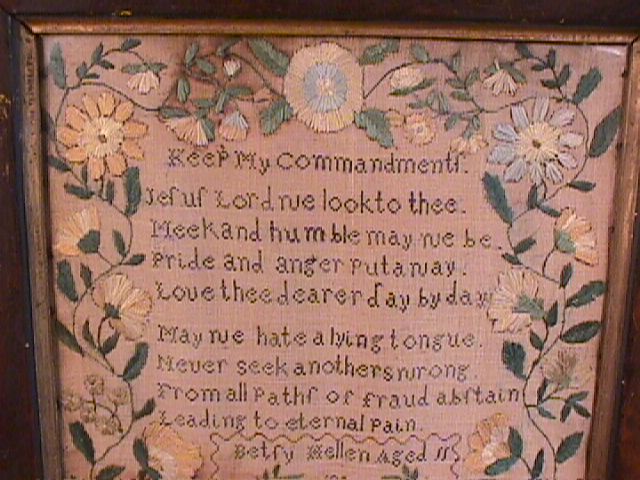 Keep My Commandments.
Jesus Lord we look to thee.
Meek and humble may we be.
Pride and anger put away.
Love thee dearer day by day
May we hate a lying tongue.
Never seek anothers wrong
From all paths of fraud abstain
Leading to eternal pain.
Betsy Hellen Aged 11